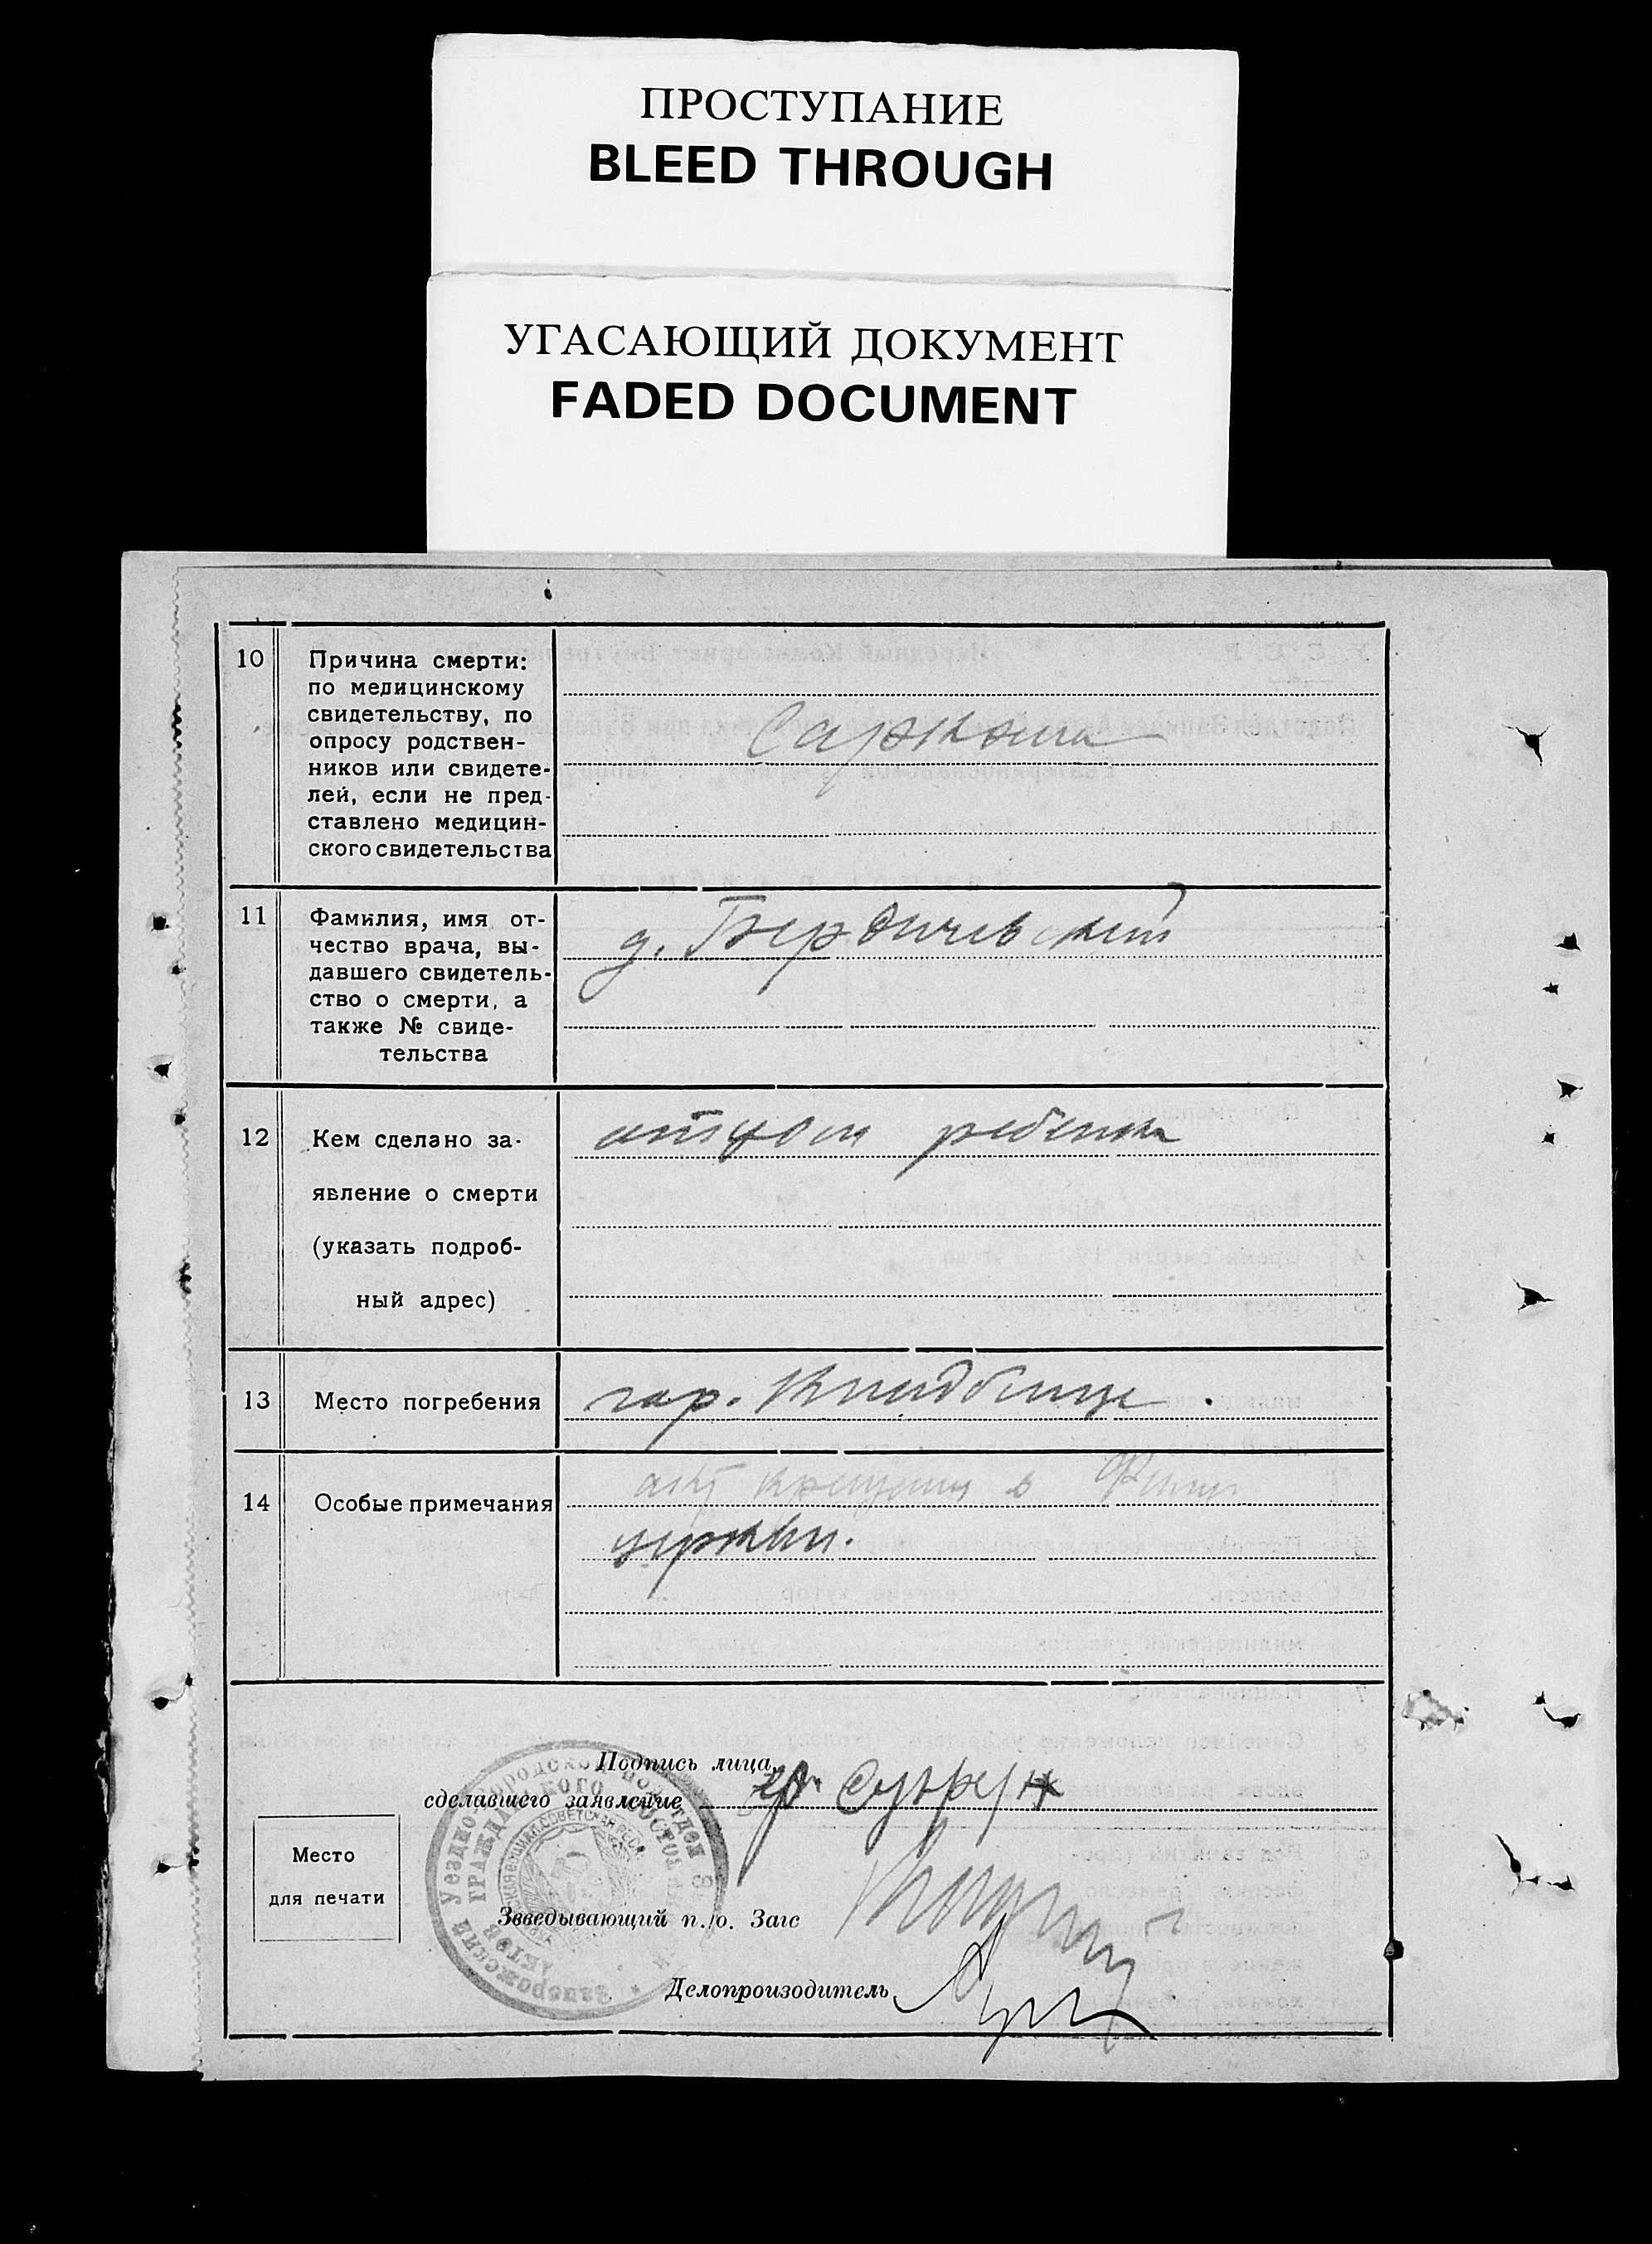 ПРОСТУПАНИЕ
BLEED THROUGH
УГАСАЮЩИЙ ДОКУМЕНТ
FADED DOCUMENT
10
Причина смерти:
по медицинскому
свидетельству, по
опросу родствен-
ников или свидете-
лей, если не пред-
ставлено медицин-
ского свидетельства
Саркома
11
Фамилия, имя от-
чество врача, вы-
давшего свидетель-
ство о смерти, а
также № свиде-
тельства
д. Бердичевский
12
Кем сделано за-
явление о смерти
(указать подроб-
ный адрес)
отцом ребенка
13
Место погребения
гор. кладбище.
14
Особые примечания
акт крещения в
церкви.
Подпись лица,
сделавшего заявление
гр.
Место
для печати
Ззведывающий п./о. Загс
Делопроизводитель